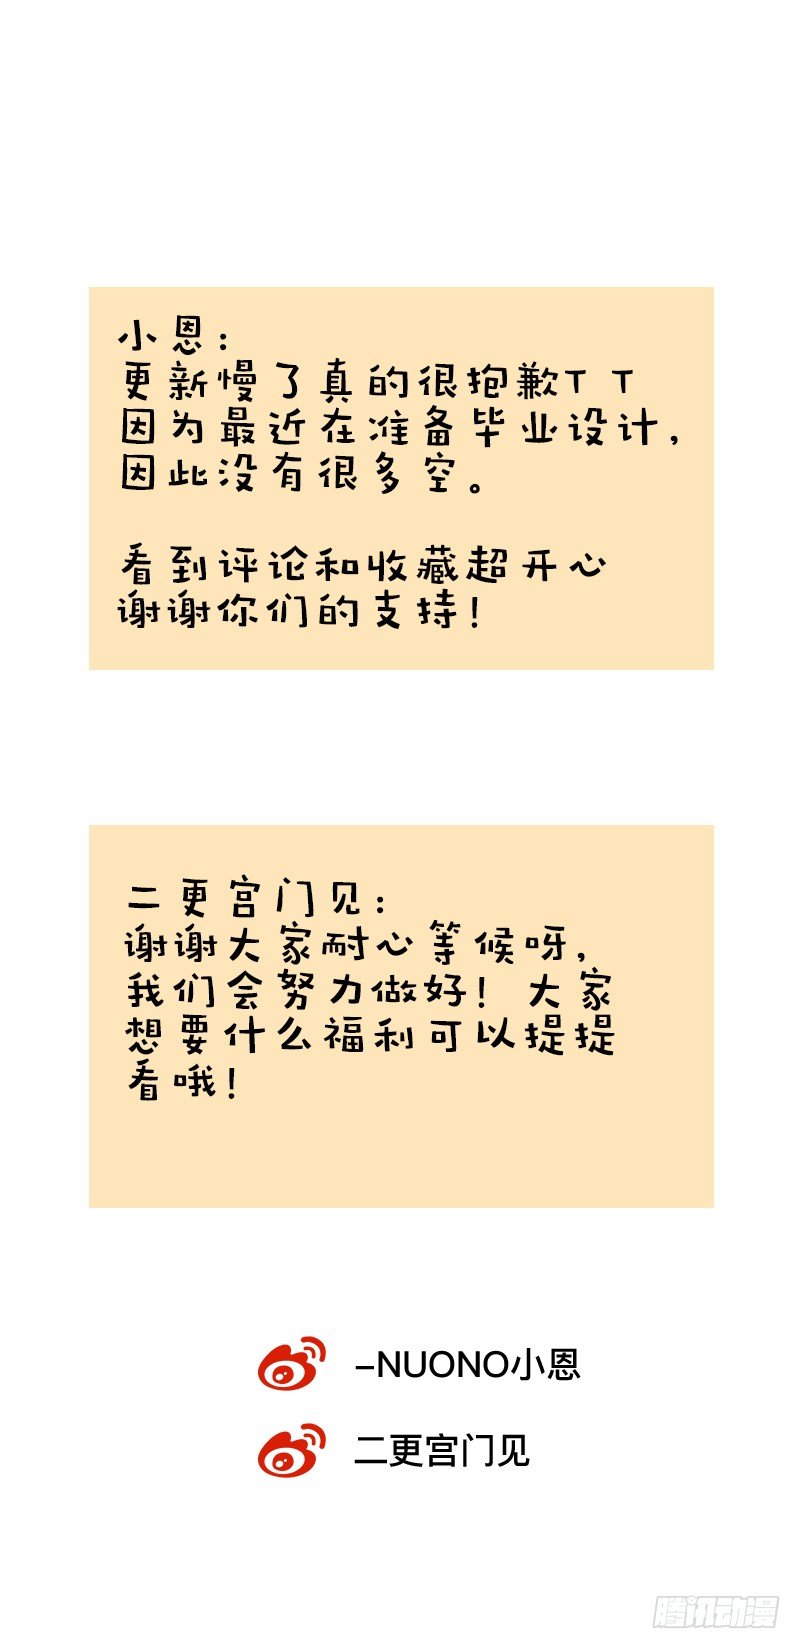 小恩：
更新慢了真的很抱歉T T
因为最近在准备毕业设计，
因此没有很多空。
看到评论和收藏超开心
谢谢你们的支持！
二更宫门见：
谢谢大家耐心等候呀，
我们会努力做好！大家
想要什么福利可以提提
看哦！
-NUONO小恩
二更宫门见
腾讯动漫